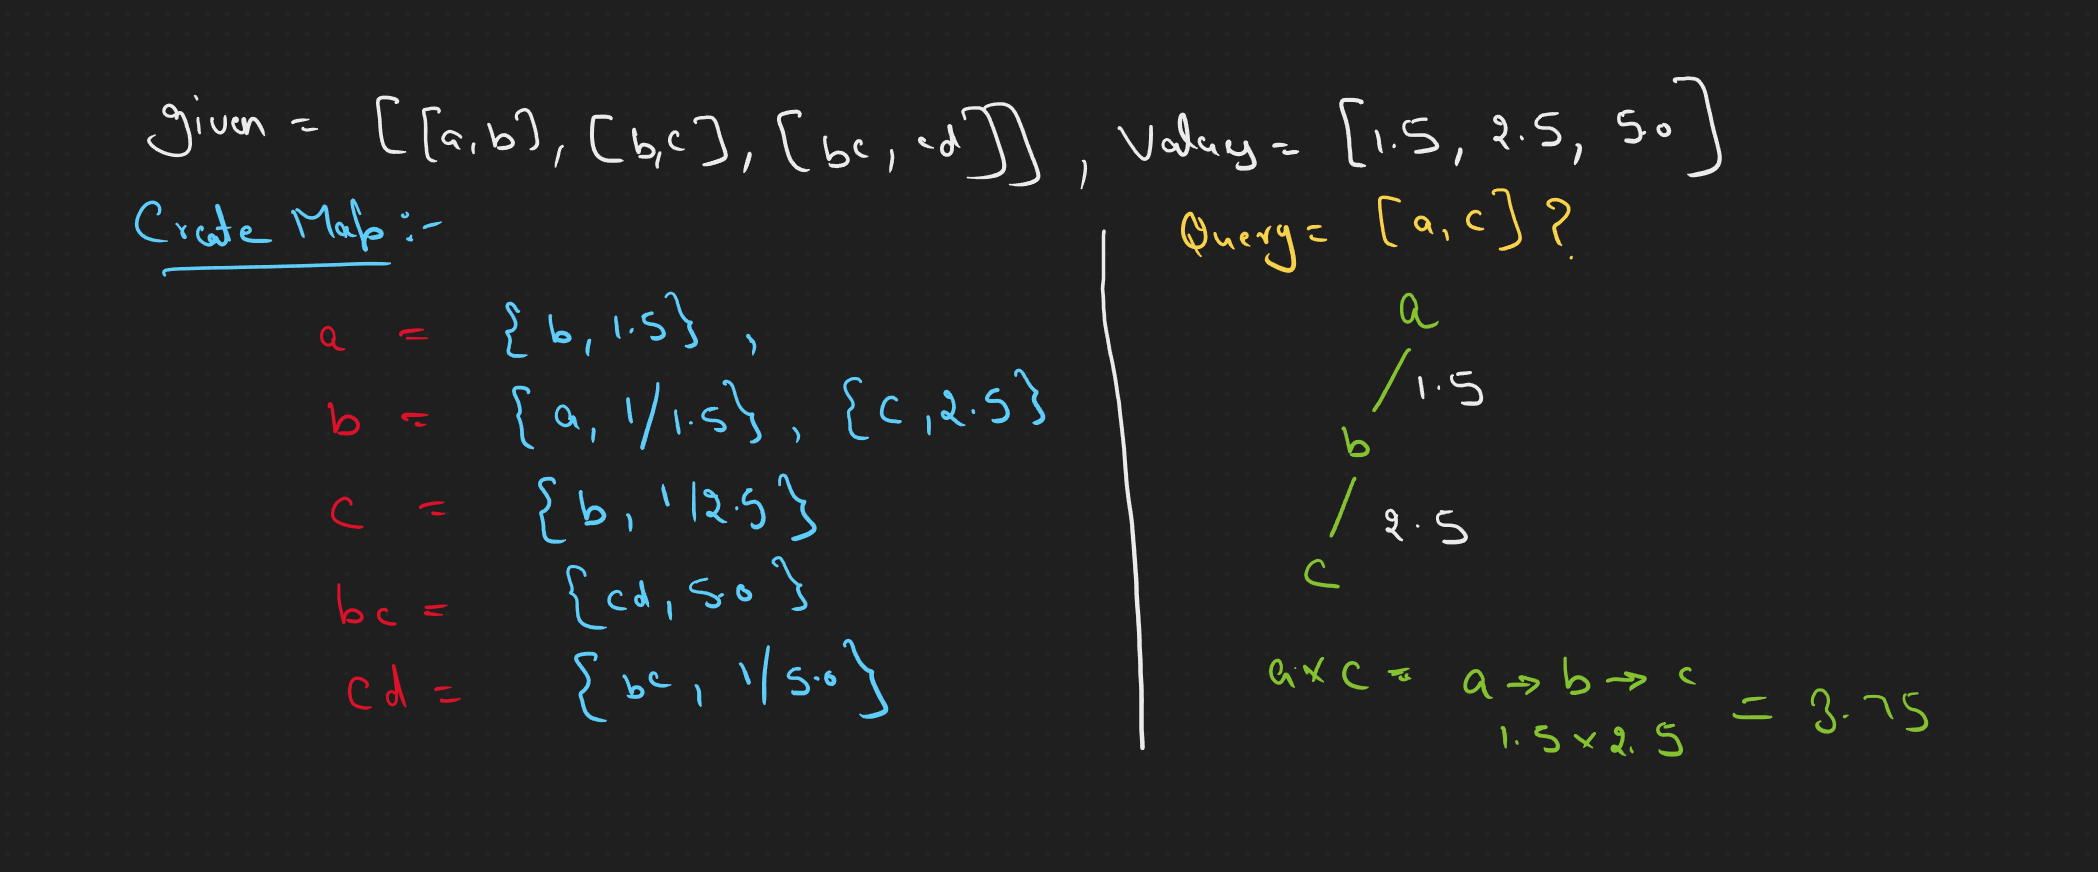 given = [[a,b], [b,c], [bc, cd]], Values = [1.5, 2.5, 5.0]
Create Map :-
a = {b, 1.5},
b = {a, 1/1.5}, {c, 2.5}
c = {b, 1/2.5}
bc = {cd, 5.0}
cd = {bc, 1/5.0}
Query = [a, c]?
a
1.5
b
2.5
c
a x c = a → b → c
1.5 x 2.5 = 3.75